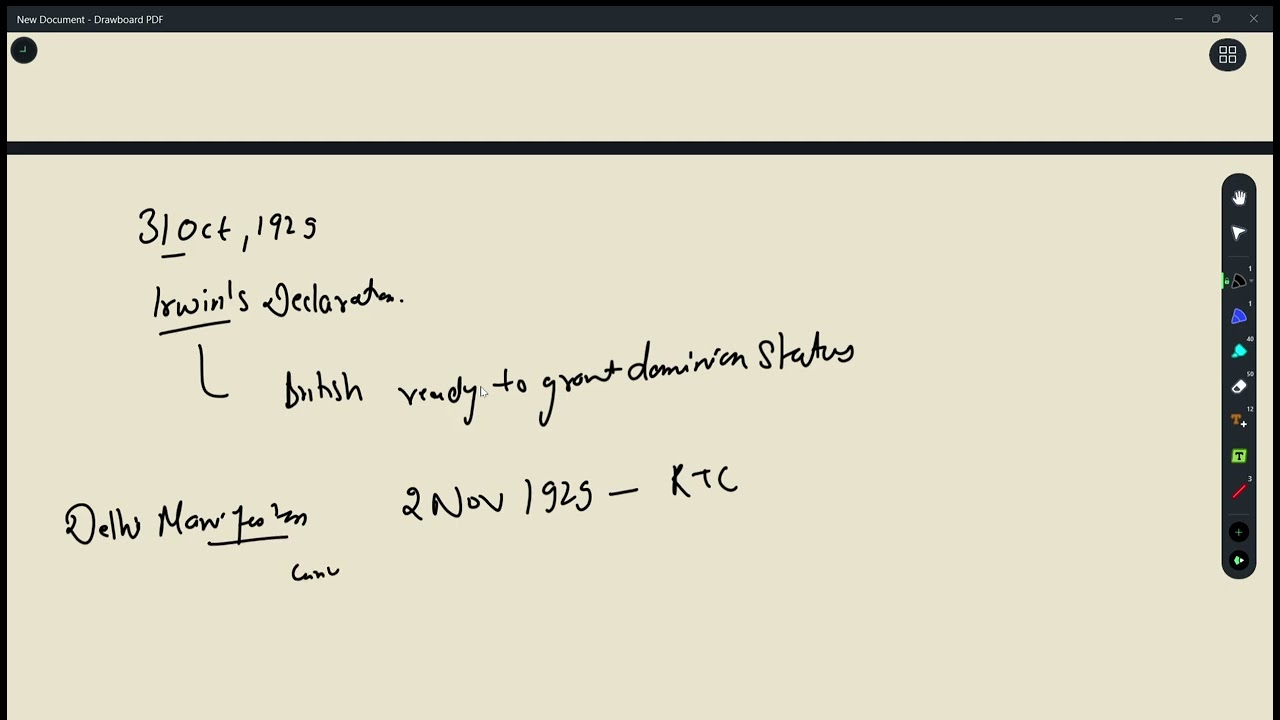 New Document - Drawboard PDF
31 Oct, 1929
Irwin's Declaration.
British ready to grant dominion Status
2 Nov 1929 — RTC
Delhi Manifesto
1
1
40
50
T+ 12
T
3